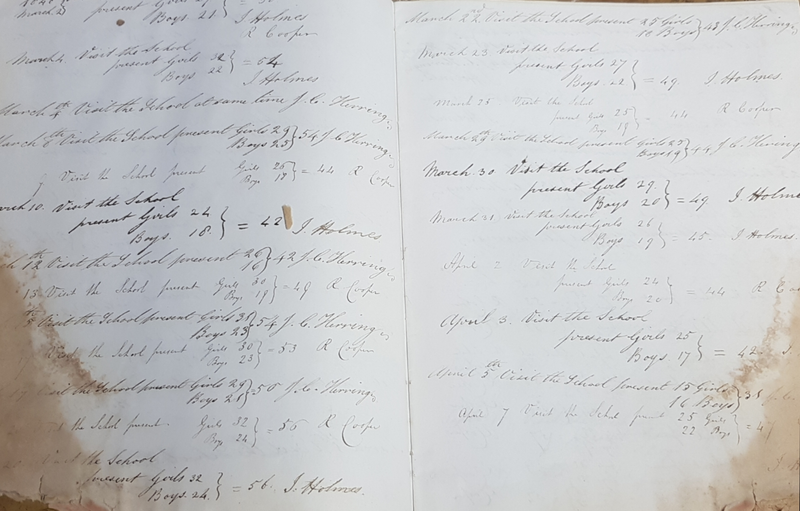 March 2
present
Boys 21 } I Holmes
R Cooper
March 4. Visit the School
present Girls 32
Boys 22 } = 54
I Holmes
March 4th Visit the School at same time J. C. Herring
March 8th Visit the School present Girls 29
Boys 25 } 54 J. C. Herring
Visit the School present Girls 26
Boys 18 } = 44 R Cooper
March 10. Visit the School
present Girls 24
Boys. 18. } = 42 I. Holmes
12th Visit the School present 26
16 } 42 J. C. Herring
15 Visit the School present Girls 30
Boys 19 } = 49 R Cooper
Visit the School present Girls 31
Boys 23 } 54 J. C. Herring
Visit the School present Girls 30
Boys 23 } = 53 R Cooper
Visit the School present Girls 29
Boys 21 } 50 J. C. Herring
the School present. Girls 32
Boys 24 } = 56 R Cooper
Visit the School
present Girls 32
Boys 24. } = 56. I. Holmes.
March 22nd Visit the School present 25 Girls
18 Boys } 43 J. C. Herring
March 23 Visit the School
present Girls 27
Boys. 22 } = 49 I Holmes
March 25 Visit the School
present Girls 25
Boys 19 } = 44 R Cooper
March 29th Visit the School present Girls 25
Boys 19 } 44 J. C. Herring
March. 30 Visit the School
present Girls 29.
Boys 20 } = 49 I Holmes
March 31 Visit the School
present Girls 26
Boys 19 } = 45. I Holmes.
April 2 Visit the School
present Girls 24
Boys 20 } = 44 R Co
April 3. Visit the School
present Girls 25
Boys 17 } = 42. I
April 5th Visit the School present 15 Girls
16 Boys } 31 J. C.
April 7 Visit the School present 25 Girls
22 Boys } = 47